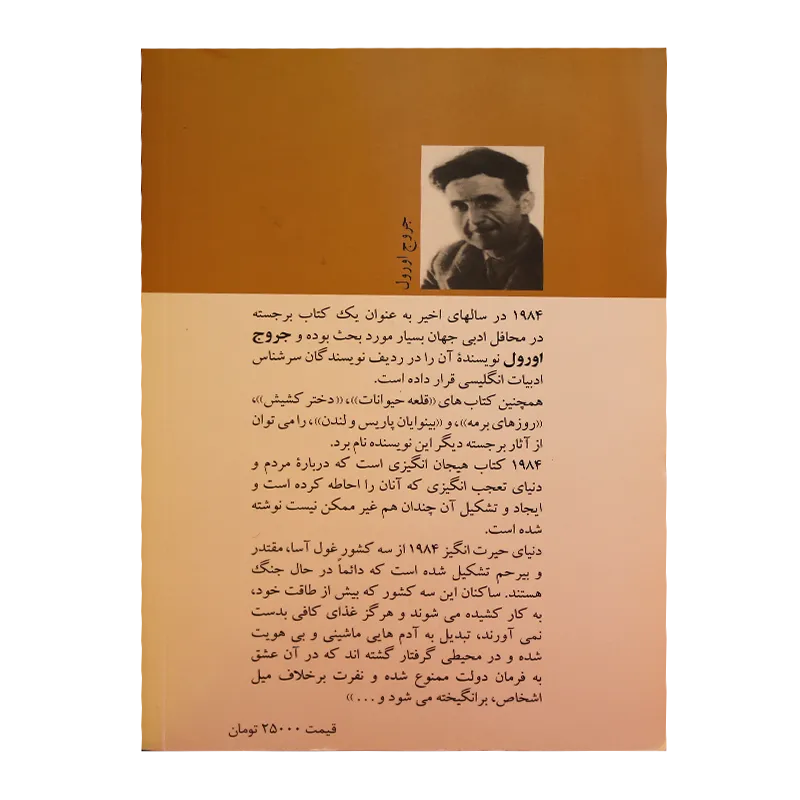 جروج اورول
۱۹۸۴ در سالهای اخیر به عنوان یک کتاب برجسته
در محافل ادبی جهان بسیار مورد بحث بوده و جروج
اورول نویسندهٔ آن را در ردیف نویسندگان سرشناس
ادبیات انگلیسی قرار داده است.
همچنین کتاب های «قلعه حیوانات»، «دختر کشیش»،
«روزهای برمه»، و «بینوایان پاریس و لندن»، را می توان
از آثار برجسته دیگر این نویسنده نام برد.
۱۹۸۴ کتاب هیجان انگیزی است که دربارهٔ مردم و
دنیای تعجب انگیزی که آنان را احاطه کرده است و
ایجاد و تشکیل آن چندان هم غیر ممکن نیست نوشته
شده است.
دنیای حیرت انگیز ۱۹۸۴ از سه کشور غول آسا، مقتدر
و بیرحم تشکیل شده است که دائماً در حال جنگ
هستند. ساکنان این سه کشور که بیش از طاقت خود،
به کار کشیده می شوند و هرگز غذای کافی بدست
نمی آورند، تبدیل به آدم هایی ماشینی و بی هویت
شده و در محیطی گرفتار گشته اند که در آن عشق
به فرمان دولت ممنوع شده و نفرت برخلاف میل
اشخاص، برانگیخته می شود و . . . »
قیمت ۲۵۰۰۰ تومان